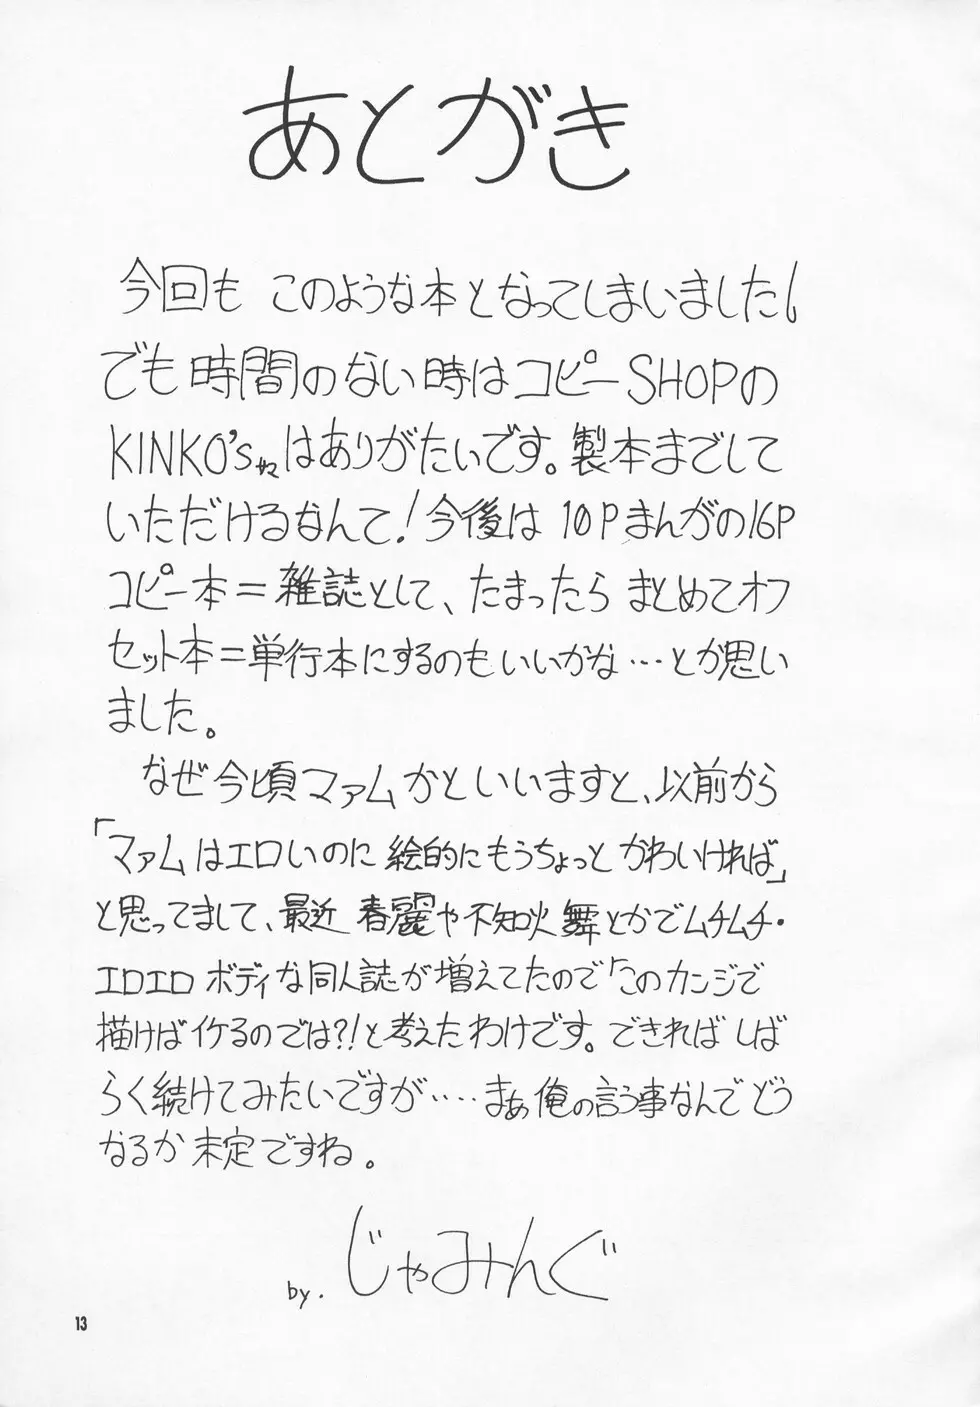 あとがき
今回も このような本となってしまいました!
でも時間のない時はコピーSHOPの
KINKO'sさまはありがたいです。製本までして
いただけるなんて!今後は 10Pまんがの16P
コピー本=雑誌として、たまったら まとめてオフ
セット本=単行本にするのもいいかな…とか思い
ました。
なぜ今頃マァムかといいますと、以前から
「マァムはエロいのに 絵的にもうちょっと かわいければ」
と思ってまして、最近 春麗や不知火舞とかでムチムチ・
エロエロ ボディな同人誌が増えてたので「このカンジで
描けばイケるのでは?!と考えたわけです。できれば しば
らく続けてみたいですが‥‥まぁ俺の言う事なんで どう
なるか 未定ですね。
by. じゃみんぐ
13